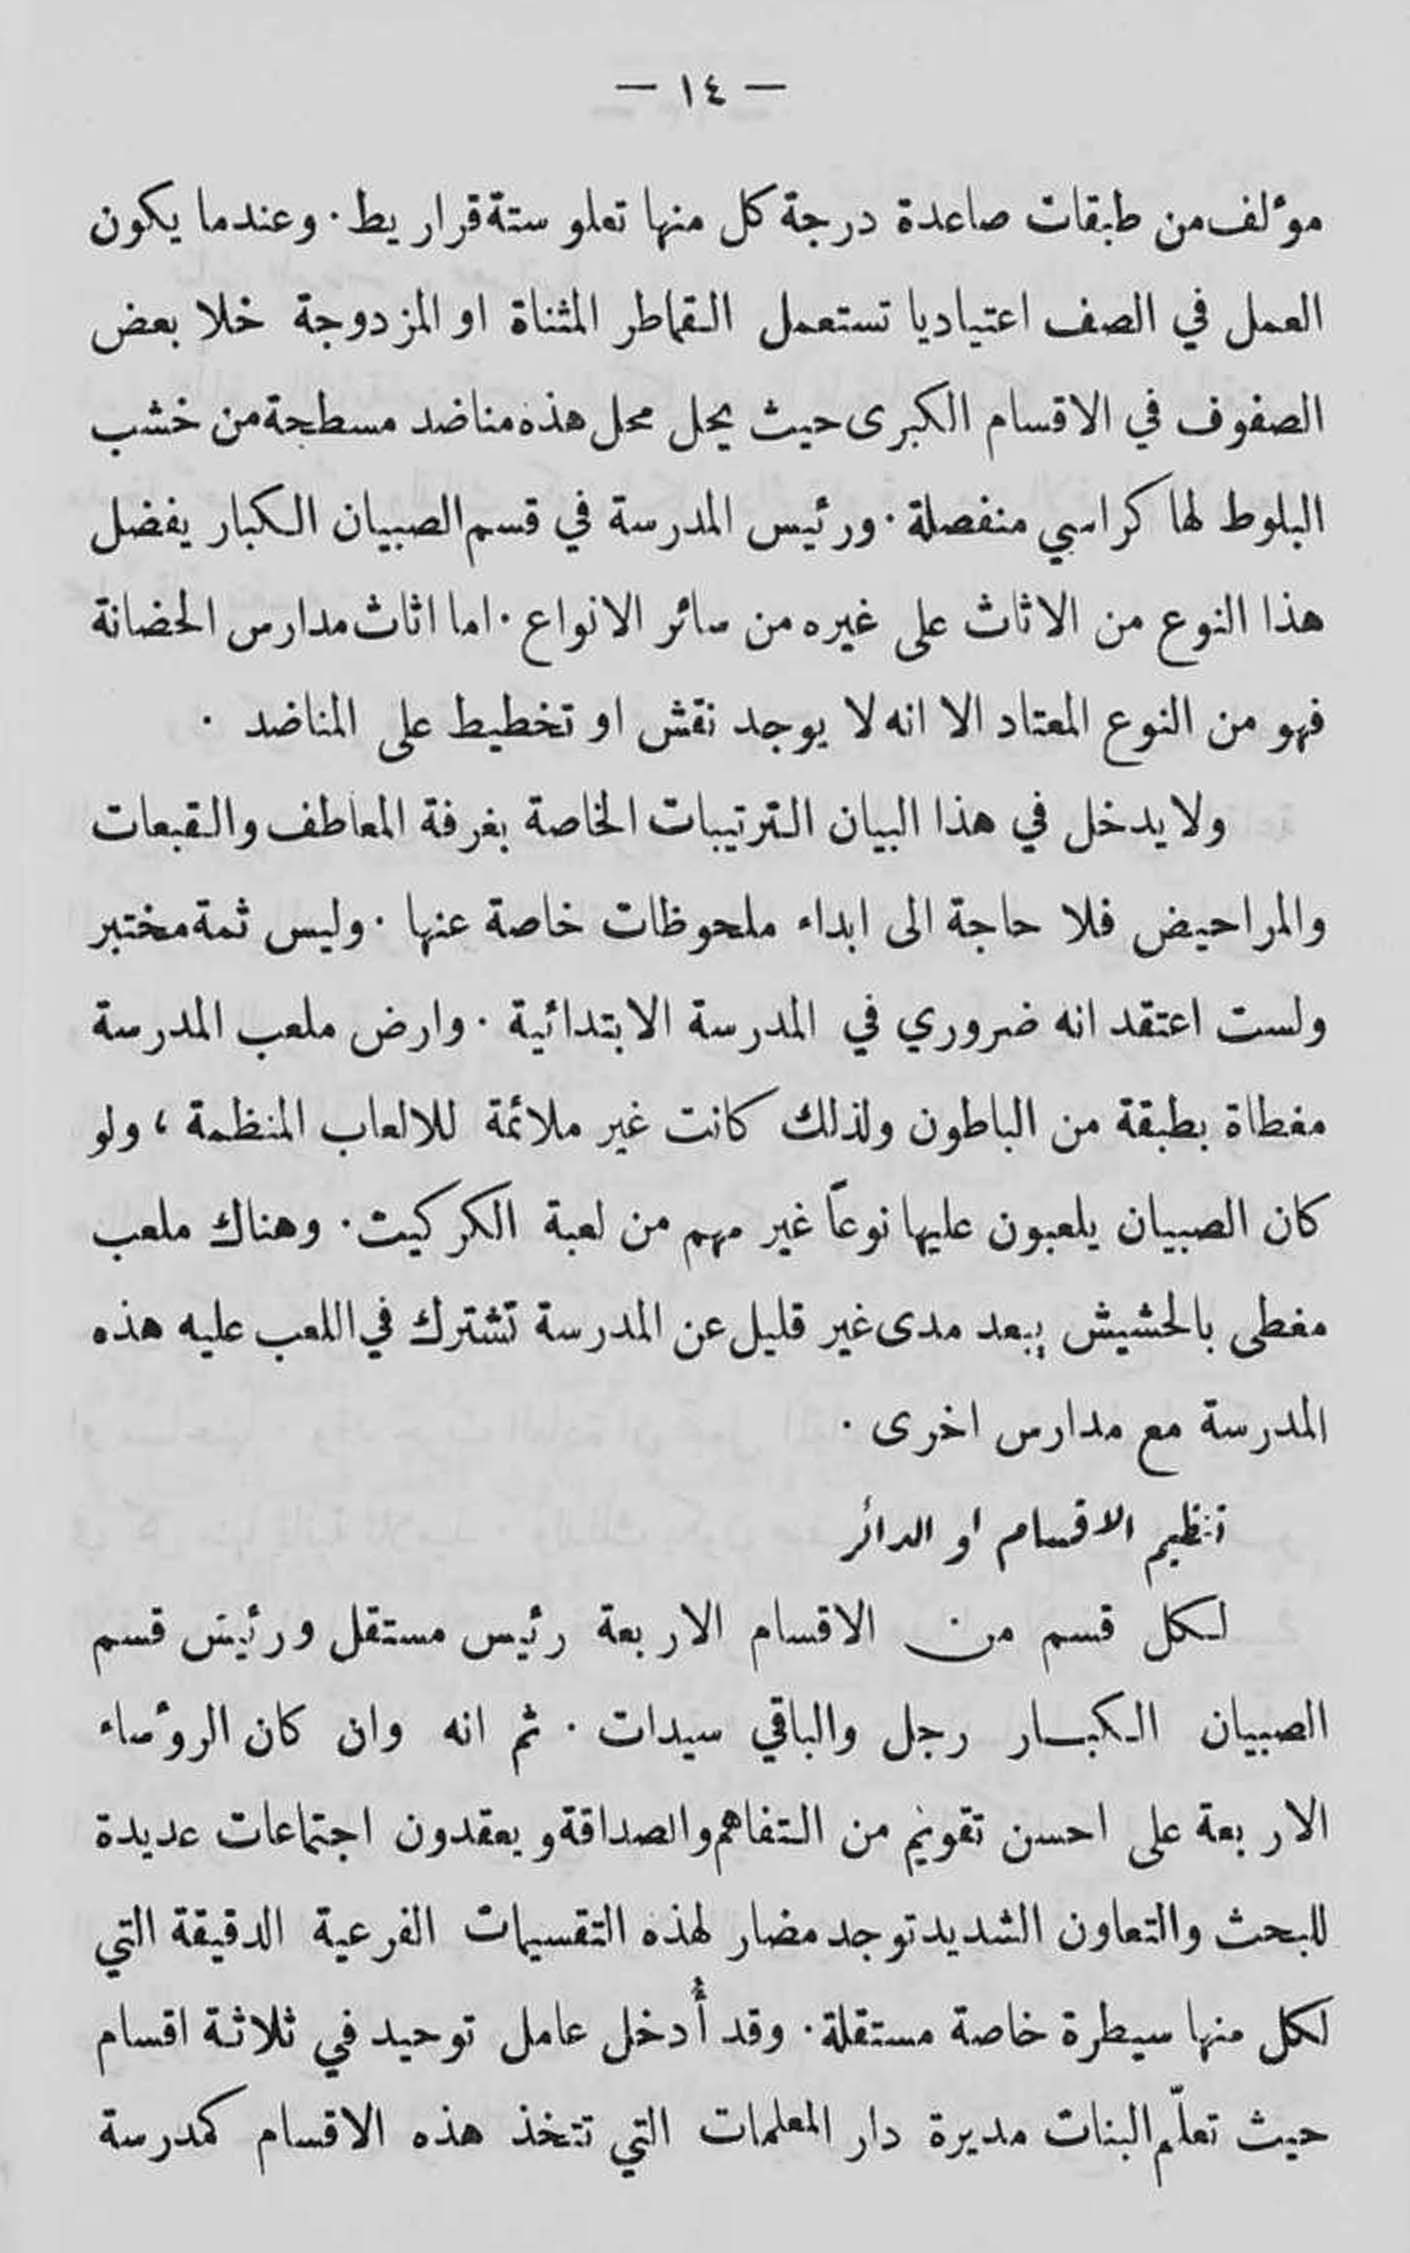 — ١٤ —
موٴلف من طبقات صاعدة درجة كل منها تعلو ستة قراريط . وعندما يكون
العمل في الصف اعتياديا تستعمل القماطر المثناة او المزدوجة خلا بعض
الصفوف في الاقسام الكبرى حيث يحل محل هذه مناضد مسطحة من خشب
البلوط لها كراسي منفصلة . ورئيس المدرسة في قسم الصبيان الكبار يفضل
هذا النوع من الاثاث على غيره من سائر الانواع . اما اثاث مدارس الحضانة
فهو من النوع المعتاد الا انه لا يوجد نقش او تخطيط على المناضد .
ولا يدخل في هذا البيان الترتيبات الخاصة بغرفة المعاطف والقبعات
والمراحيض فلا حاجة الى ابداء ملحوظات خاصة عنها . وليس ثمة مختبر
ولست اعتقد انه ضروري في المدرسة الابتدائية . وارض ملعب المدرسة
مغطاة بطبقة من الباطون ولذلك كانت غير ملائمة للالعاب المنظمة ، ولو
كان الصبيان يلعبون عليها نوعاً غير مهم من لعبة الكركيت . وهناك ملعب
مغطى بالحشيش يبعد مدى غير قليل عن المدرسة تشترك في اللعب عليه هذه
المدرسة مع مدارس اخرى .
تنظيم الاقسام او الدائر
لكل قسم من الاقسام الاربعة رئيس مستقل ورئيس قسم
الصبيان الكبار رجل والباقي سيدات . ثم انه وان كان الروٴساء
الاربعة على احسن تقويم من التفاهم والصداقة ويعقدون اجتماعات عديدة
للبحث والتعاون الشديد توجد مضار لهذه التقسيمات الفرعية الدقيقة التي
لكل منها سيطرة خاصة مستقلة . وقد أُدخل عامل توحيد في ثلاثة اقسام
حيث تعلّم البنات مديرة دار المعلمات التي تتخذ هذه الاقسام كمدرسة